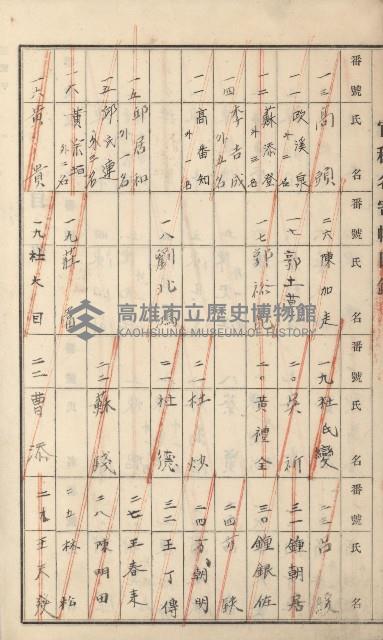 番號 氏名
一三 高 頭
一一 歐溪泉
一二 蘇添登 外二名
一四 李吉成 外五名
一一 高番知 外一名
一五 邱居和 外一名
一五 邱氏連 外二名
一六 黃宗 外二名
一六 黃 貴
番號 氏名
二六 陳加走
一七 郭土
一七 郭裕
一八 劉北
一九 莊
一九 杜大目
番號 氏名
一九 杜氏變
二〇 吳 祈
二〇 黃禮全
二一 杜 炒
二一 杜 德
二二 蘇 錢
二二 曹 添
番號 氏名
二三 呂 緩
三一 鍾朝居
三〇 鍾銀佐
二四 方 缺
二四 方朝明
三二 王丁傳
二七 王春來
二八 陳明田
二五 林 松
王天
高雄市立歷史博物館
KAOHSIUNG MUSEUM OF HISTORY